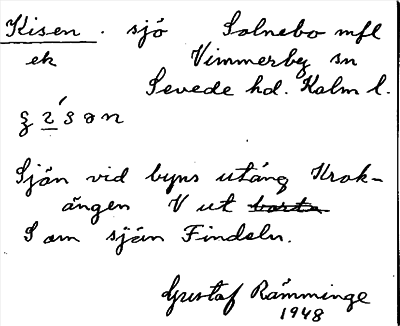 Kisen . sjö Solnebo mfl
ek Vimmerby sn
Sevede hd. Kalm l.
Sjön vid byns utäng Krok-
ängen V ut
S om sjön Findeln.
Gustaf Rämminge
1948